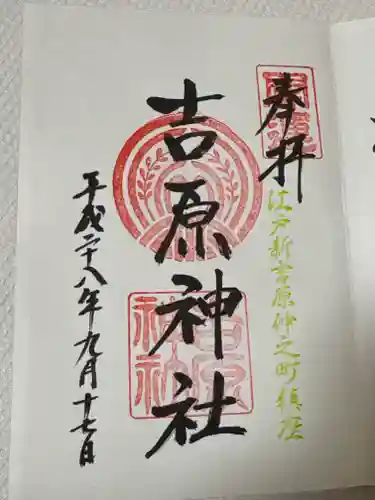 奉拝
江戸新吉原仲之町鎮座
吉原神社
吉原神社
平成二十八年九月十七日